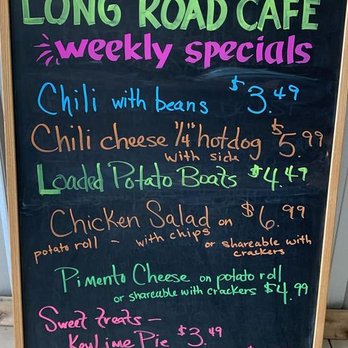 LONG ROAD CAFE
weekly specials
Chili with beans $3.49
Chili cheese 1/4 lb hotdog $5.99
with side
Loaded Potato Boats $4.49
Chicken Salad on $6.99
potato roll - with chips
or shareable with
crackers
Pimento Cheese on potato roll
or shareable with crackers $4.99
Sweet Treats -
Key Lime Pie $3.49